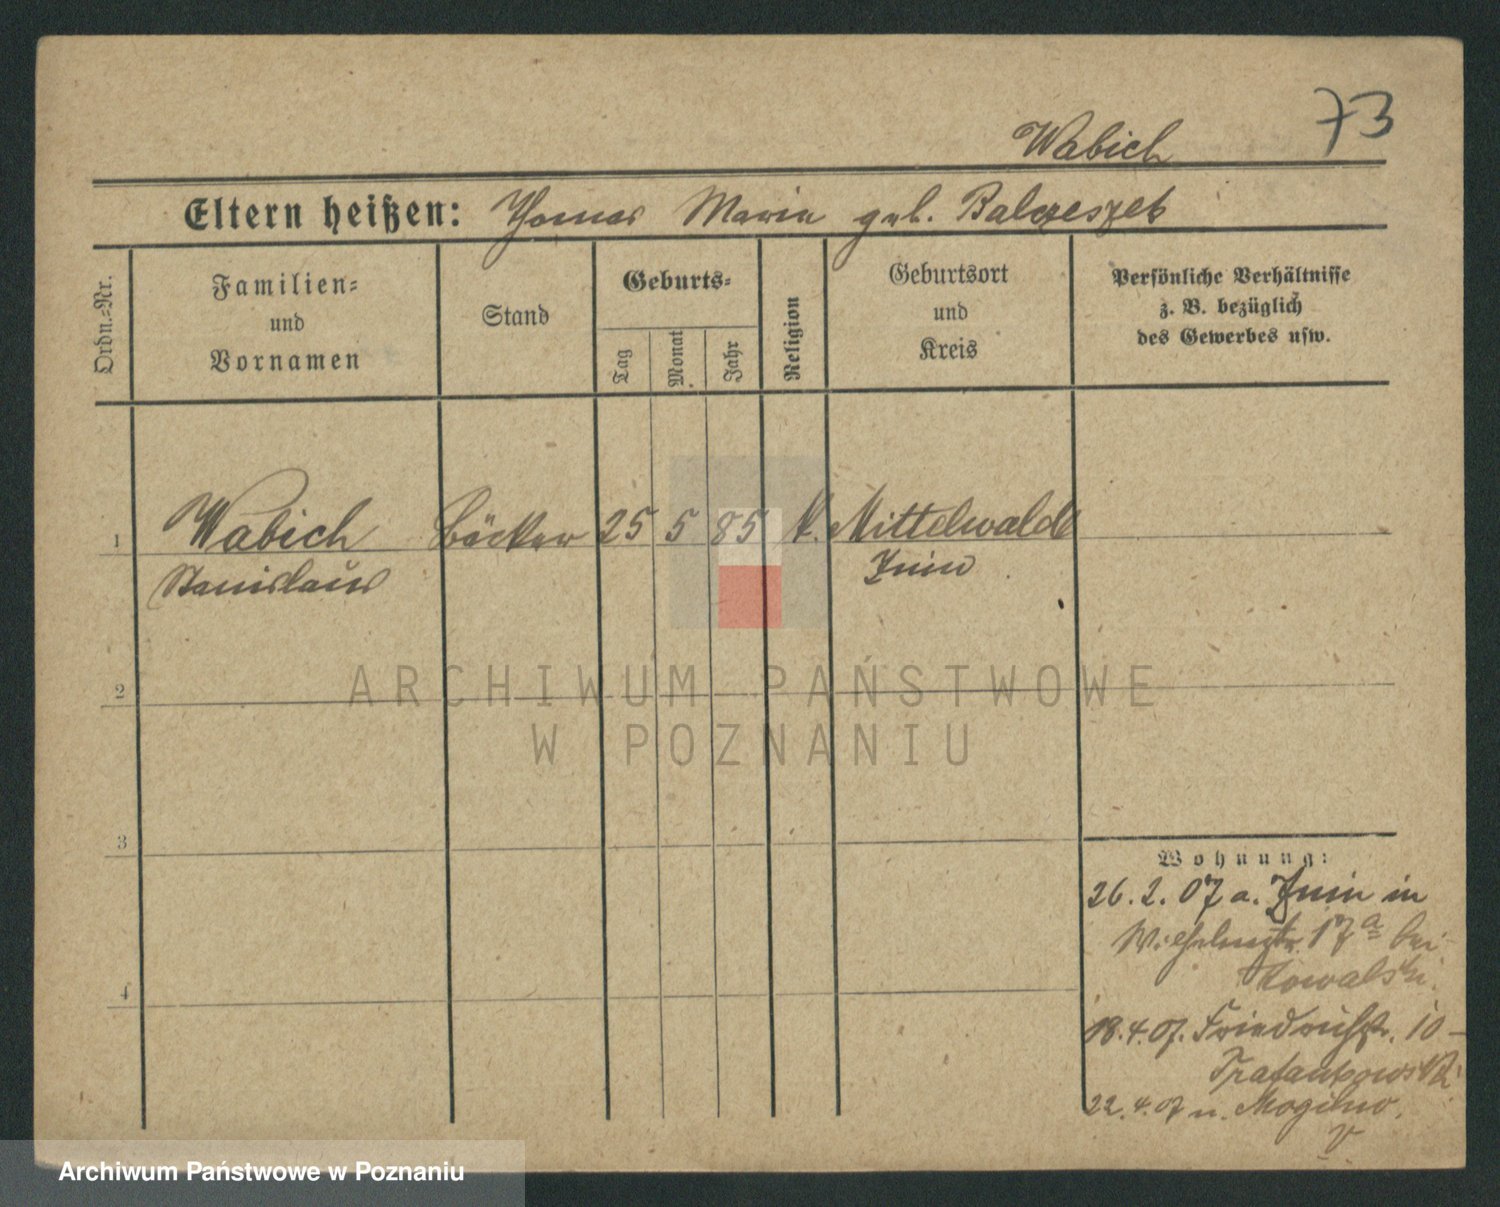 73
Wabich
Eltern heißen: Thomas Maria geb. Balczeszek
Ordn.-Nr.
Familien-
und
Vornamen
Stand
Geburts-
Tag
Monat
Jahr
Religion
Geburtsort
und
Kreis
Persönliche Verhältnisse
z. B. bezüglich
des Gewerbes usw.
1 Wabich Bäcker 25 5 85 k. Mittelwalde
Stanislaus Znin
2
3
4
Wohnung:
26.2.07 a. Znin in
Wilhelmstr. 17ª bei
Kowalski.
18.4.07. Friedrichstr. 10-
22.4.07 n. Mogilno.
ARCHIWUM PAŃSTWOWE
W POZNANIU
Archiwum Państwowe w Poznaniu